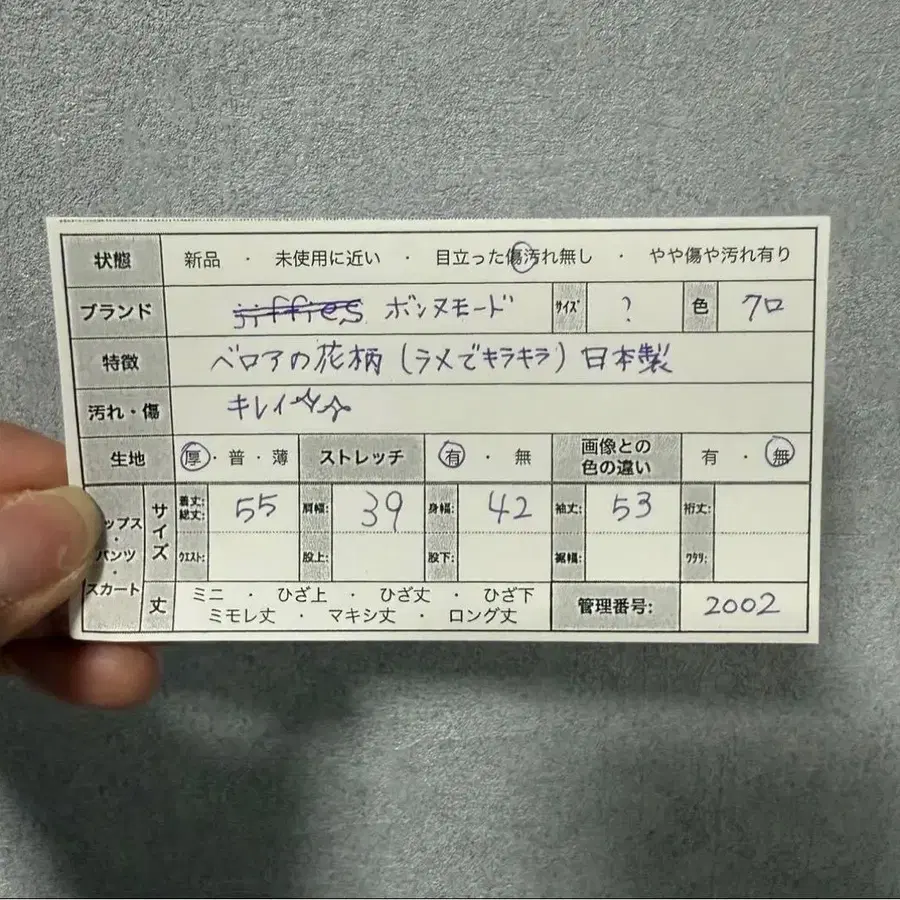 状態 新品 ・ 未使用に近い ・ 目立った傷汚れ無し ・ やや傷や汚れ有り
ブランド jiffies ボンヌモード サイズ ? 色 クロ
特徴 ベロアの花柄(ラメでキラキラ)日本製
汚れ・傷 キレイ☆☆
生地 厚・普・薄 ストレッチ 有 ・ 無 画像との色の違い 有 ・ 無
ップス・パンツ・スカート サイズ 着丈:総丈: 55 肩幅: 39 身幅: 42 袖丈: 53 裄丈:
ウエスト: 股上: 股下: 裾幅: ワタリ:
丈 ミニ ・ ひざ上 ・ ひざ丈 ・ ひざ下
ミモレ丈 ・ マキシ丈 ・ ロング丈 管理番号: 2002